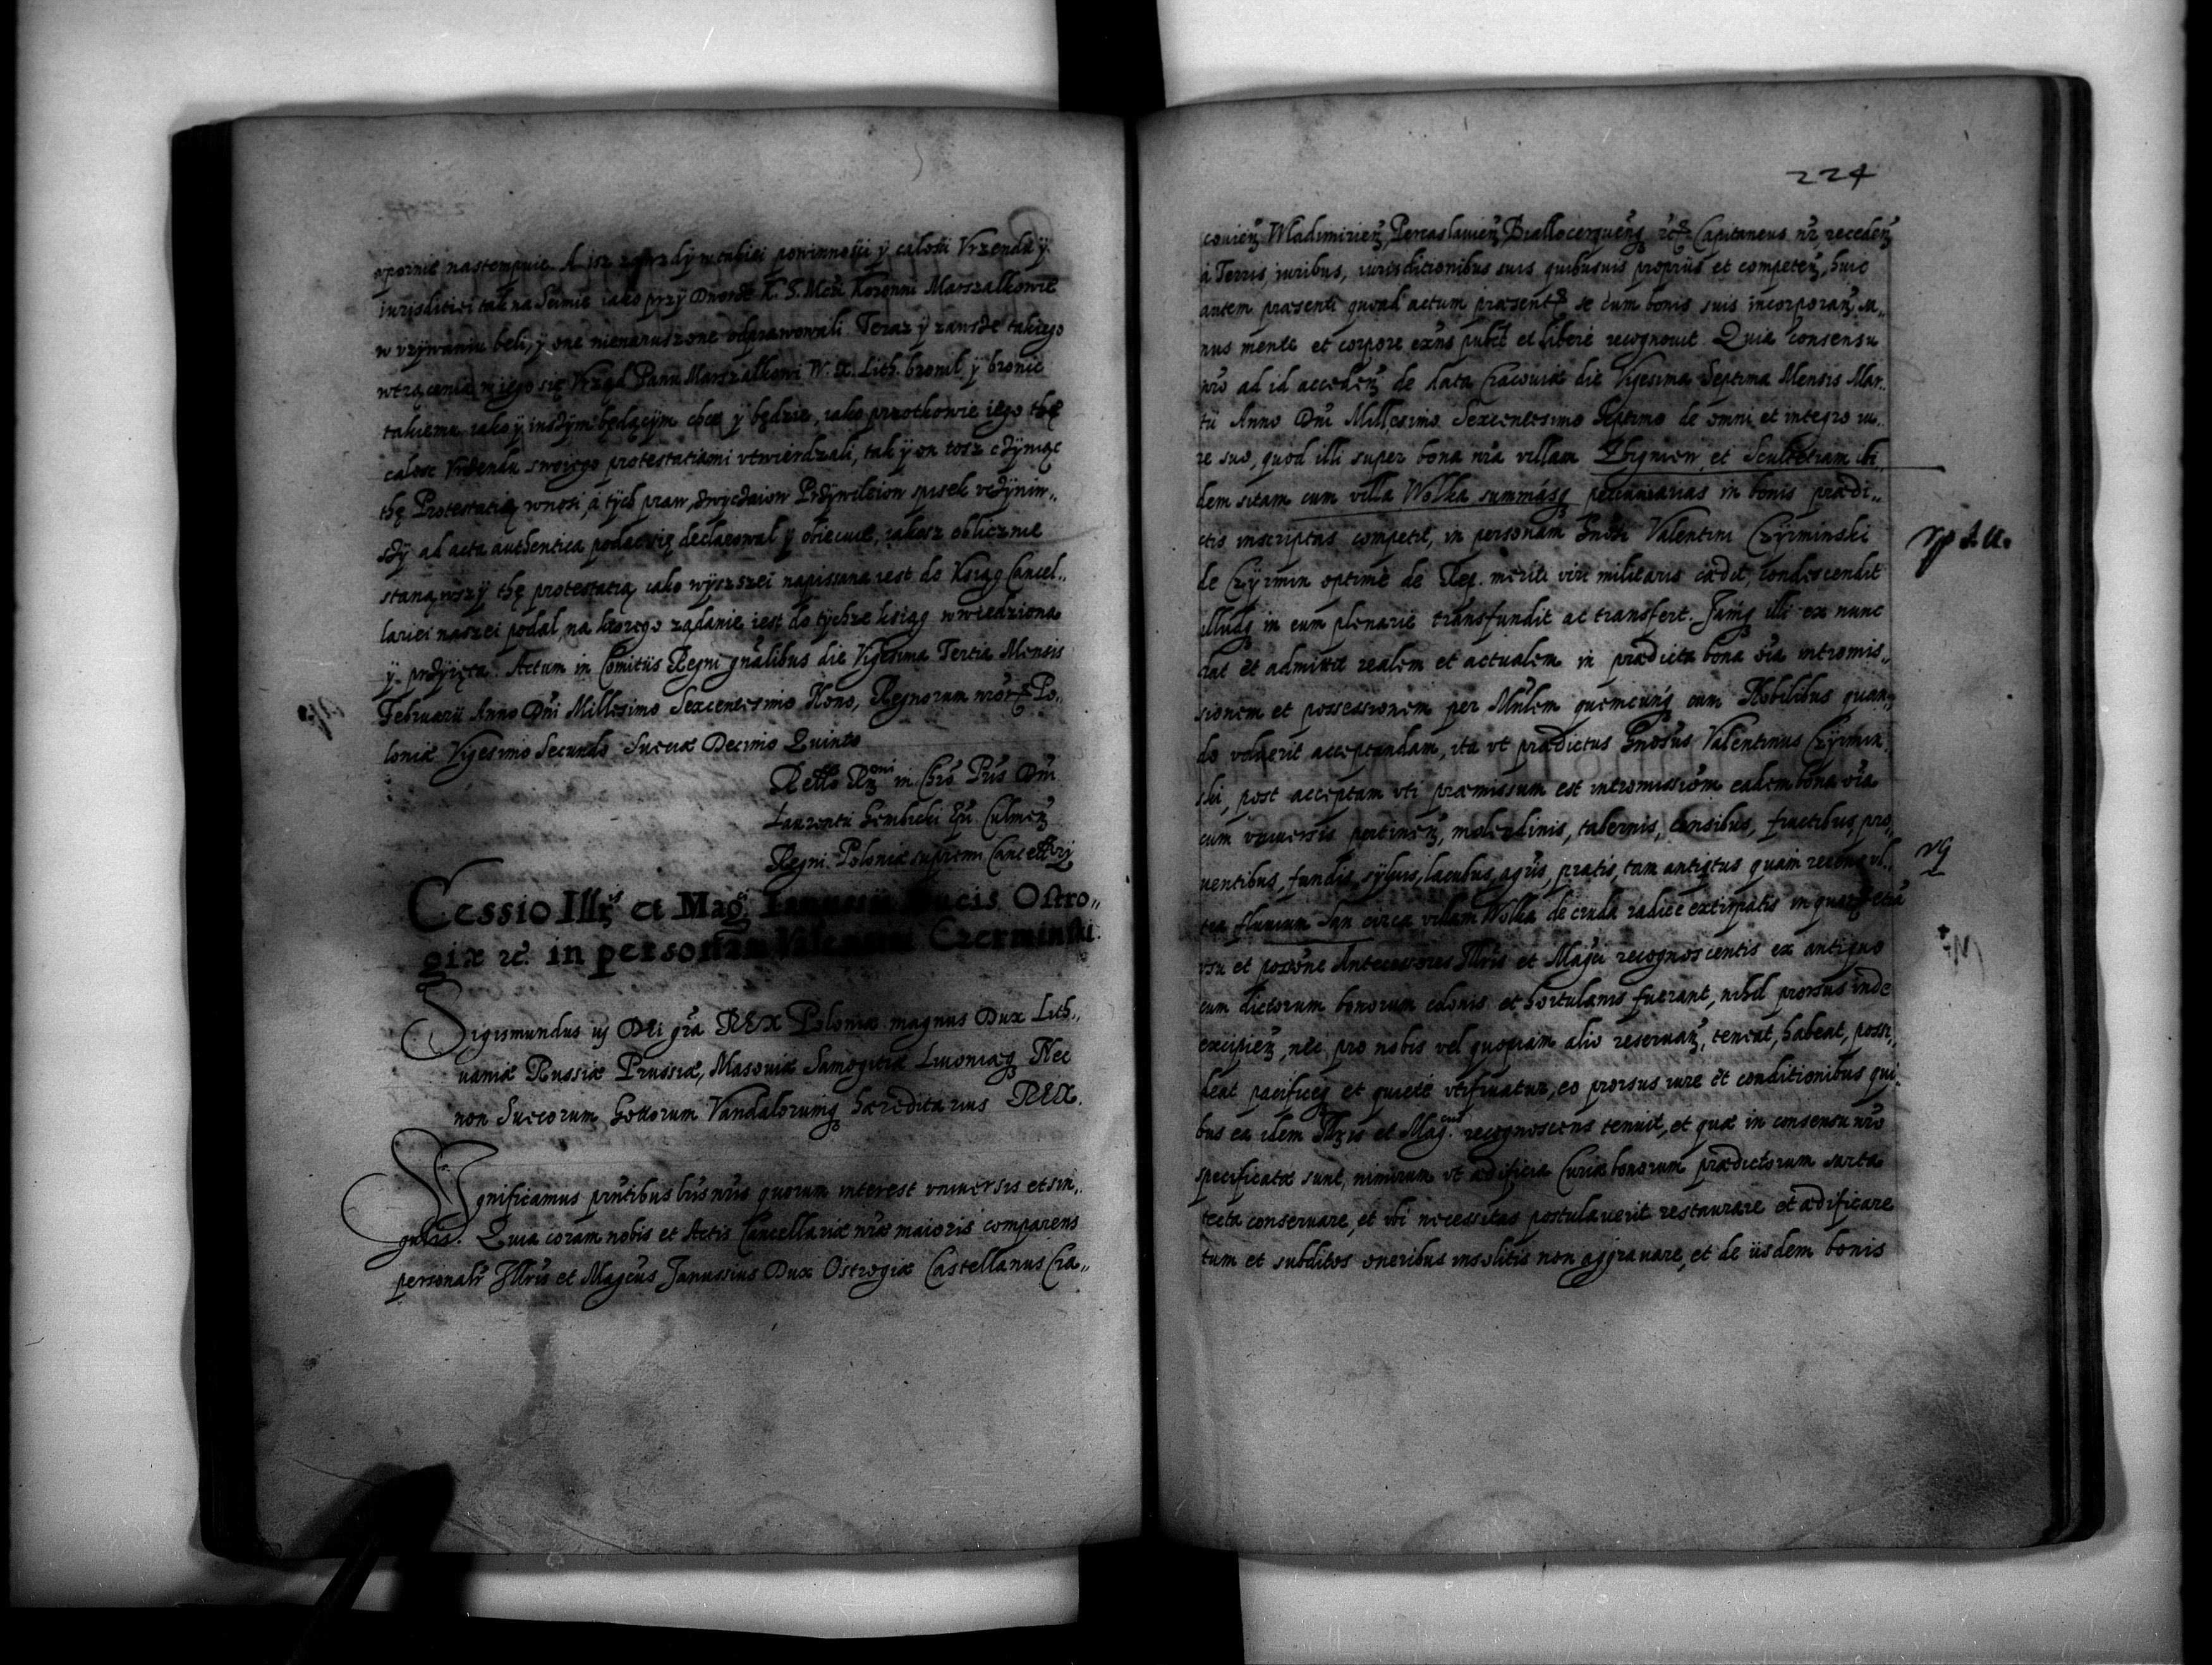 opornie nastempuie. A isz zawzdy w takiei powinnosci y calosci Vrzendu y
iurisditiei tak na Seimie iako przy Dworze K. S. Mcsi Koronni Marszalkowie
w vzywaniu beli, y one nienaruszone odprawowali. Teraz y zawsze takiego
wtrącenia w iego się Vrząd Panu Marszalkowi W. X. Lith. bronil y bronic
takiemu iako y inszym będącym chce y będzie, iako przotkowie iego thę
calosc Vrzendu swoiego protestatiami vtwierdzali, tak y on tosz czyniąc
thę Protestatią wnosi, a tych praw, zwyczaiow Przywileiow spisek vczyniw„
szy ad acta authentica podac się declarowal y obiecuie, iakosz oblicznie
stanąwszy thę protestatią iako wyszszei napissana iest do Ksiąg Cancel„
lariei naszei podal, na ktorego ządanie iest do tychze ksiąg wwiedziona
y przyięta. Actum in Comitiis Regni gnalibus die Vigesima Tertia Mensis
Februarii Anno Dni Millesimo Sexcentesimo Nono, Regnorum nror Po„
loniæ Vigesimo Secundo Sueciæ Decimo Quinto
Rello Rndi in Chro Pris Dni
Laurentii Gembicki Epi Culmen
Regni Poloniæ supremi Cancellrij
Cessio Illris et Magci Ianussii Ducis Ostro„
giæ etc. in personam Valentini Czerminski.
Sigismundus iij Dei gra REX Poloniæ magnus Dux Lith„
uaniæ Russiæ Prussiæ, Masouiæ Samogitiæ Liuoniæq Nec
non Suecorum Gottorum Vandalorumq hæreditarius REX.
Significamus pntibus lris nris quorum interest vniuersis et sin„
gulis. Quia coram nobis et Actis Cancellariæ nræ maioris comparens
personalr Illris et Magcus Janussius Dux Ostrogiæ Castellanus Cra„
224
couien Wladimirien, Pereaslauien Biallocerquenq etc. Capitaneus nr receden
à Terris, iuribus, iurisditionibus suis quibusuis propriis et competen, huic
autem præsenti quoad actum præsent se cum bonis suis incorporan, sa„
nus mente et corpore exns publ et libere recognouit. Quia consensu
nro ad id acceden de data Cracouiæ die Vigesima Septima Mensis Mar„
tii Anno Dni Millesimo Sexcentesimo Septimo de omni et integro iu„
re suo, quod illi super bona nra villam Zbigniow et Scultetiam ibi„
dem sitam cum villa Wolka summasq pecuniarias in bonis prædi„
ctis inscriptas competit, in personam Gnosi Valentini Czyrminski
de Czyrmin optime de Rep. meriti viri militaris cædit, condescendit
illudq in eum plenarie transfundit ac transfert. Jamq illi ex nunc
dat et admittit realem et actualem in prædicta bona oia intromis„
sionem et possessionem per Mnlem quemcunq cum Nobilibus quan„
do voluerit acceptandam, ita vt prædictus Gnosus Valentinus Czyrmin„
ski, post acceptam vti præmissum est intromissiom eadem bona oia
cum vniuersis pertinen, molendinis, tabernis, censibus, fructibus, pro„
uentibus, fundis, syluis, lacubus, agris, pratis, tam antiqtus quam recenq vl„
tra fluuium San circa villam Wolka de cruda radice extirpatis in quar etiã
vsu et possone Antecessores Illris et Magci recognoscentis ex antiquo
cum dictorum bonorum colonis et hortulanis fuerant, nihil prorsus inde
excipien, nec pro nobis vel quopiam alio reseruan, teneat, habeat, possi„
deat pacificeq et quiete vtifruatur, eo prorsus iure et conditionibus qui„
bus ea idem Illris et Mag.cus recognoscens tenuit, et quæ in consensu nro
specificatæ sunt, nimirum vt ædificia Curiæ bonorum prædictorum sarta
tecta conseruare, et vbi necessitas postulauerit restaurare et ædificare
tum et subditos oneribus insolitis non aggrauare, et de iisdem bonis